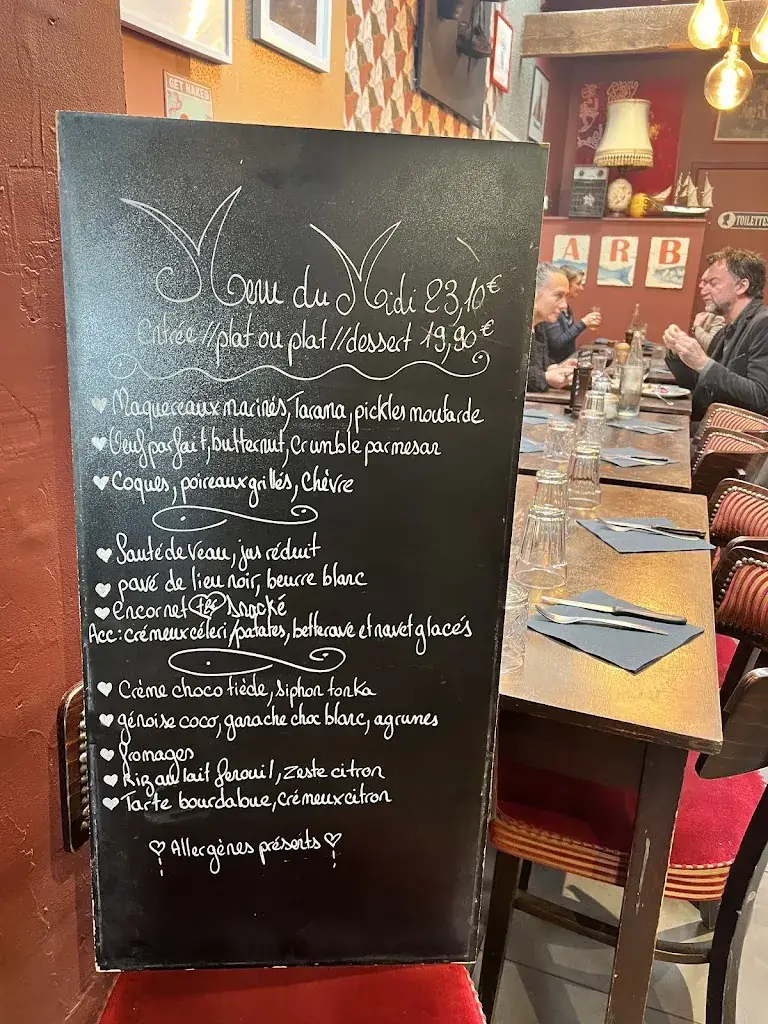 GET NAKED
TOILETTES
ARB
Menu du Midi 23,10€
Entrée // plat ou plat // dessert 19,90€
Maquereaux marinés, Tarama, pickles moutarde
Oeuf parfait, butternut, crumble parmesan
Coques, poireaux grillés, chèvre
Sauté de veau, jus réduit
pavé de lieu noir, beurre blanc
encornet snacké
Acc: crémeux céleri/patates, betterave et navet glacés
Crème choco tiède, siphon tonka
génoise coco, ganache choc blanc, agrumes
fromages
Riz au lait fenouil, zeste citron
Tarte bourdaloue, crémeux citron
Allergènes présents